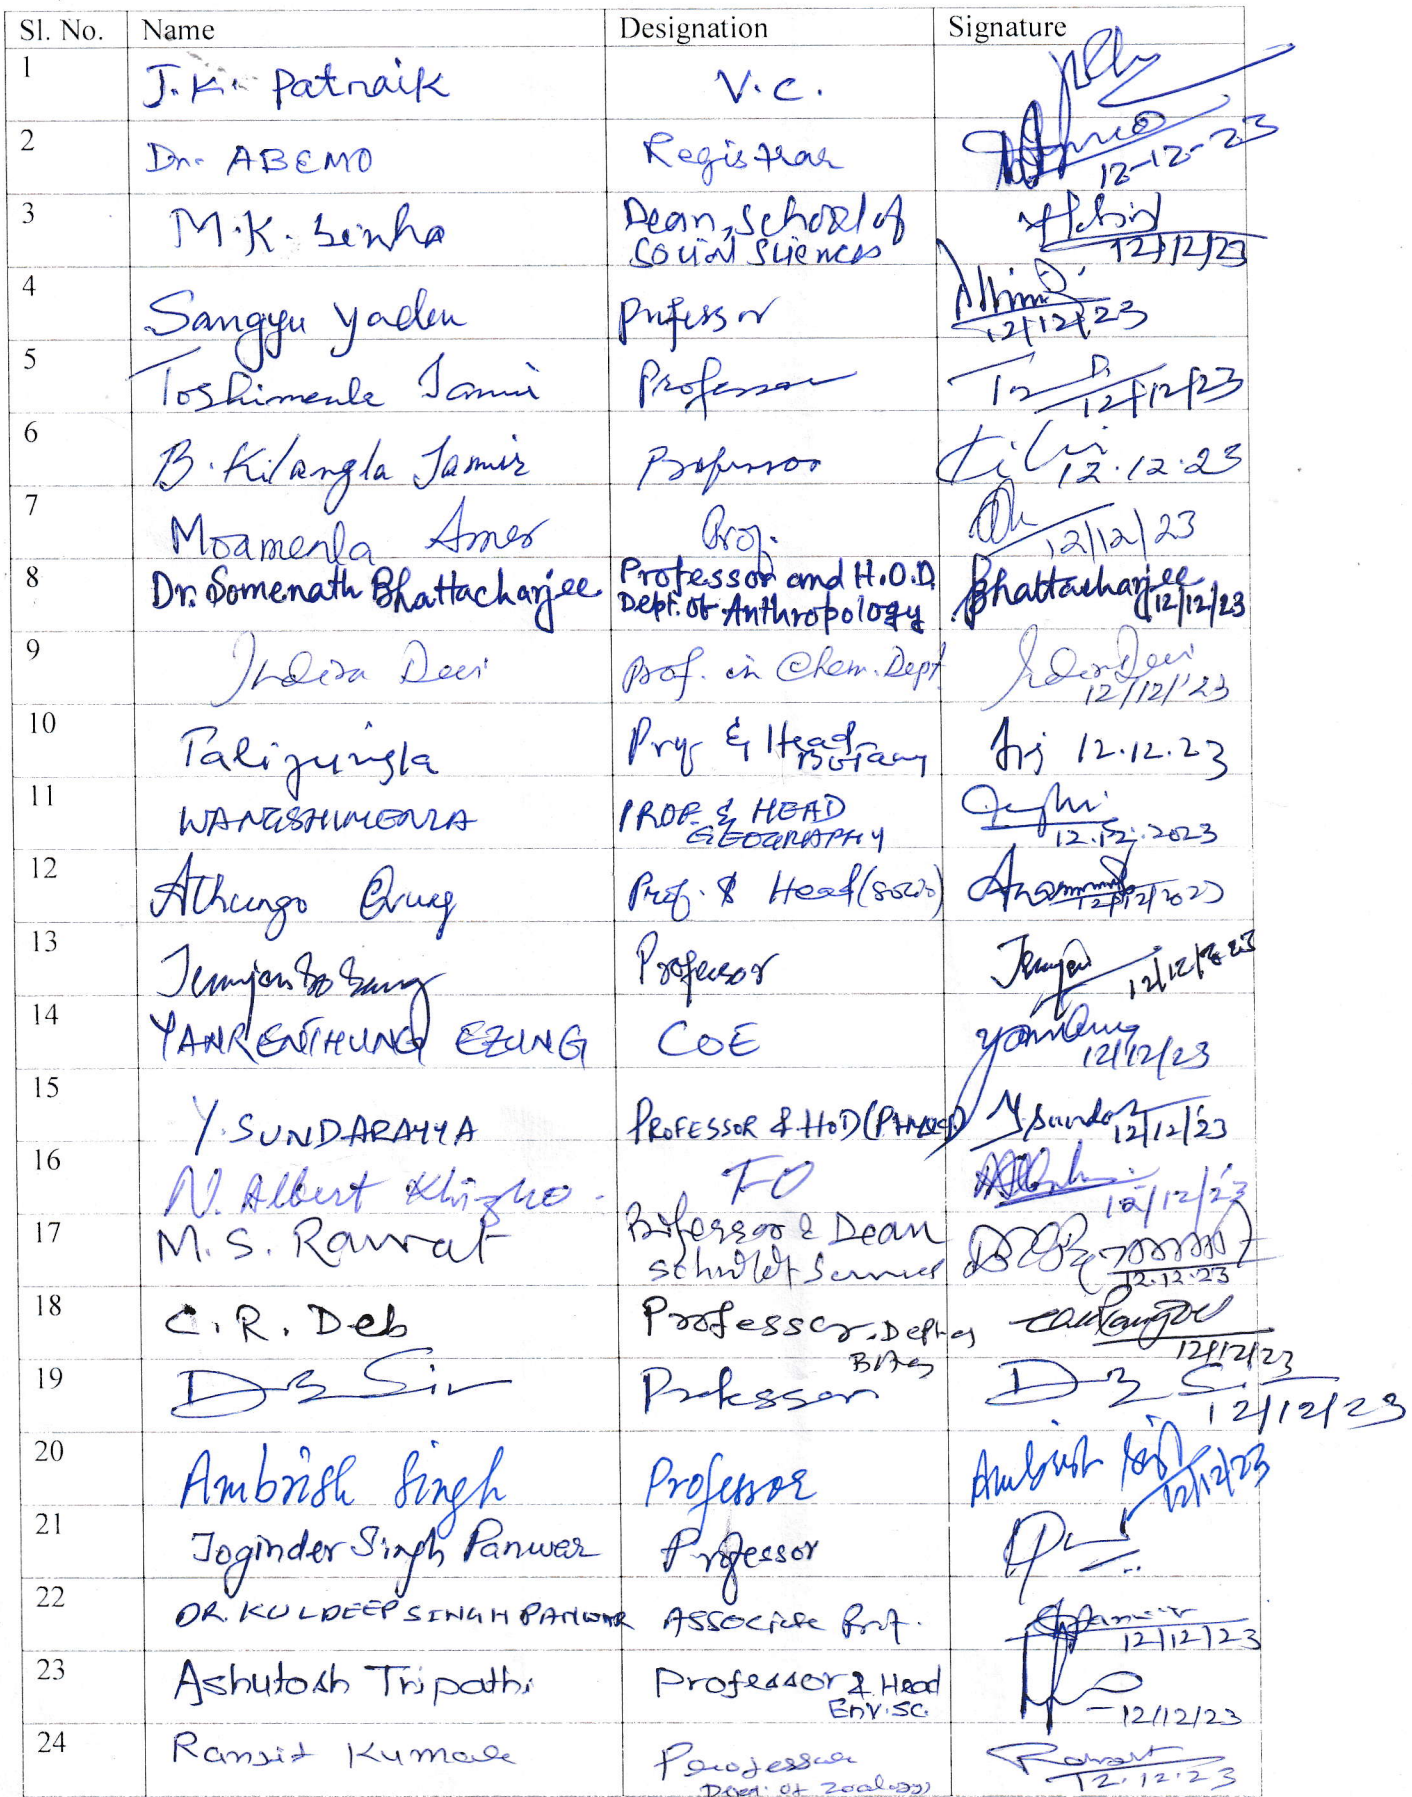 Sl. No. Name Designation Signature
1 J.K. Patnaik V.C.
2 Dr. ABEMO Registrar 12-12-23
3 M.K. Sinha Dean, School of
Social Sciences 12/12/23
4 Sangyu Yaden Professor 12/12/23
5 Toshimenla Jamir Professor 12/12/23
6 B. Kilangla Jamir Professor 12.12.23
7 Moamenla Amer Prof. 12/12/23
8 Dr. Somenath Bhattacharjee Professor and H.O.D. Bhattacharjee
Dept. of Anthropology 12/12/23
9 Indira Devi Prof. in Chem. Dept. Indira Devi
12/12/'23
10 Talijungla Prof & Head 12.12.23
Botany
11 WANGSHIMENLA PROF. & HEAD
GEOGRAPHY 12.12.2023
12 Athungo Prof. & Head (socio) 12/12/2023
13 Professor 12/12/2023
14 YANRENTHUNG EZUNG COE 12/12/23
15 Y. SUNDARAYYA PROFESSOR & HoD 12/12/'23
16 N. Albert Khizho FO 12/12/'23
17 M.S. Rawat Professor & Dean
School of Sciences 12.12.23
18 C.R. Deb Professor, Dept of 12/12/23
19 Professor 12/12/23
20 Ambrish Singh Professor Ambrish Singh 12/12/23
21 Joginder Singh Panwar Professor
22 DR. KULDEEP SINGH PANWAR Associate Prof. 12/12/23
23 Ashutosh Tripathi Professor & Head
Env. Sc. 12/12/23
24 Ranjit Kumar Professor
Dept. of Zoology 12.12.23